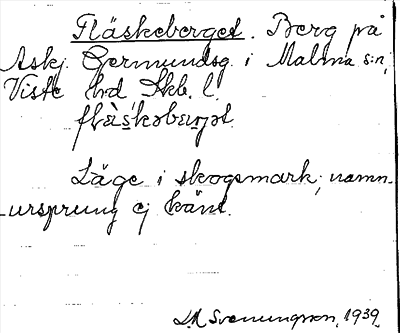 Fläskeberget. Berg på
Askj. Germundsg. i Malma s:n,
Viste hrd Skb. l.
flä̀skəbærjət.
Läge i skogsmark; namn-
ursprung ej känt.
Svenungson, 1939.